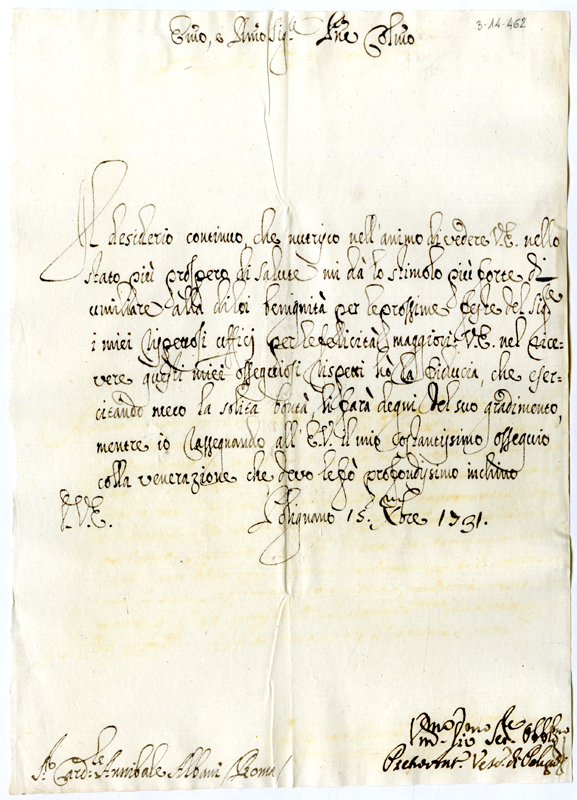 3-14-462
Emo, e Rmo Sig.re Pne Colmo
Il desiderio continuo, che nutrisco nell'animo di vedere V.E. nello
stato più prospero di salute mi dà lo stimolo più forte di
umiliare alla di lei benignità per le prossime feste del Sig.re
i miei rispettosi ufficj per le felicità maggiori: V.E. nel rice-
vere questi miei ossequiosi rispetti hò la fiducia, che eser-
citando meco la solita bontà, li farà degni del suo gradimento,
mentre io rassegnando all'E.V. il mio costantissimo ossequio
colla venerazione che devo le fò profondissimo inchino
D.V.E. 15. Xbre 1731.
Sr. Card.le Annibale Albani / Roma /